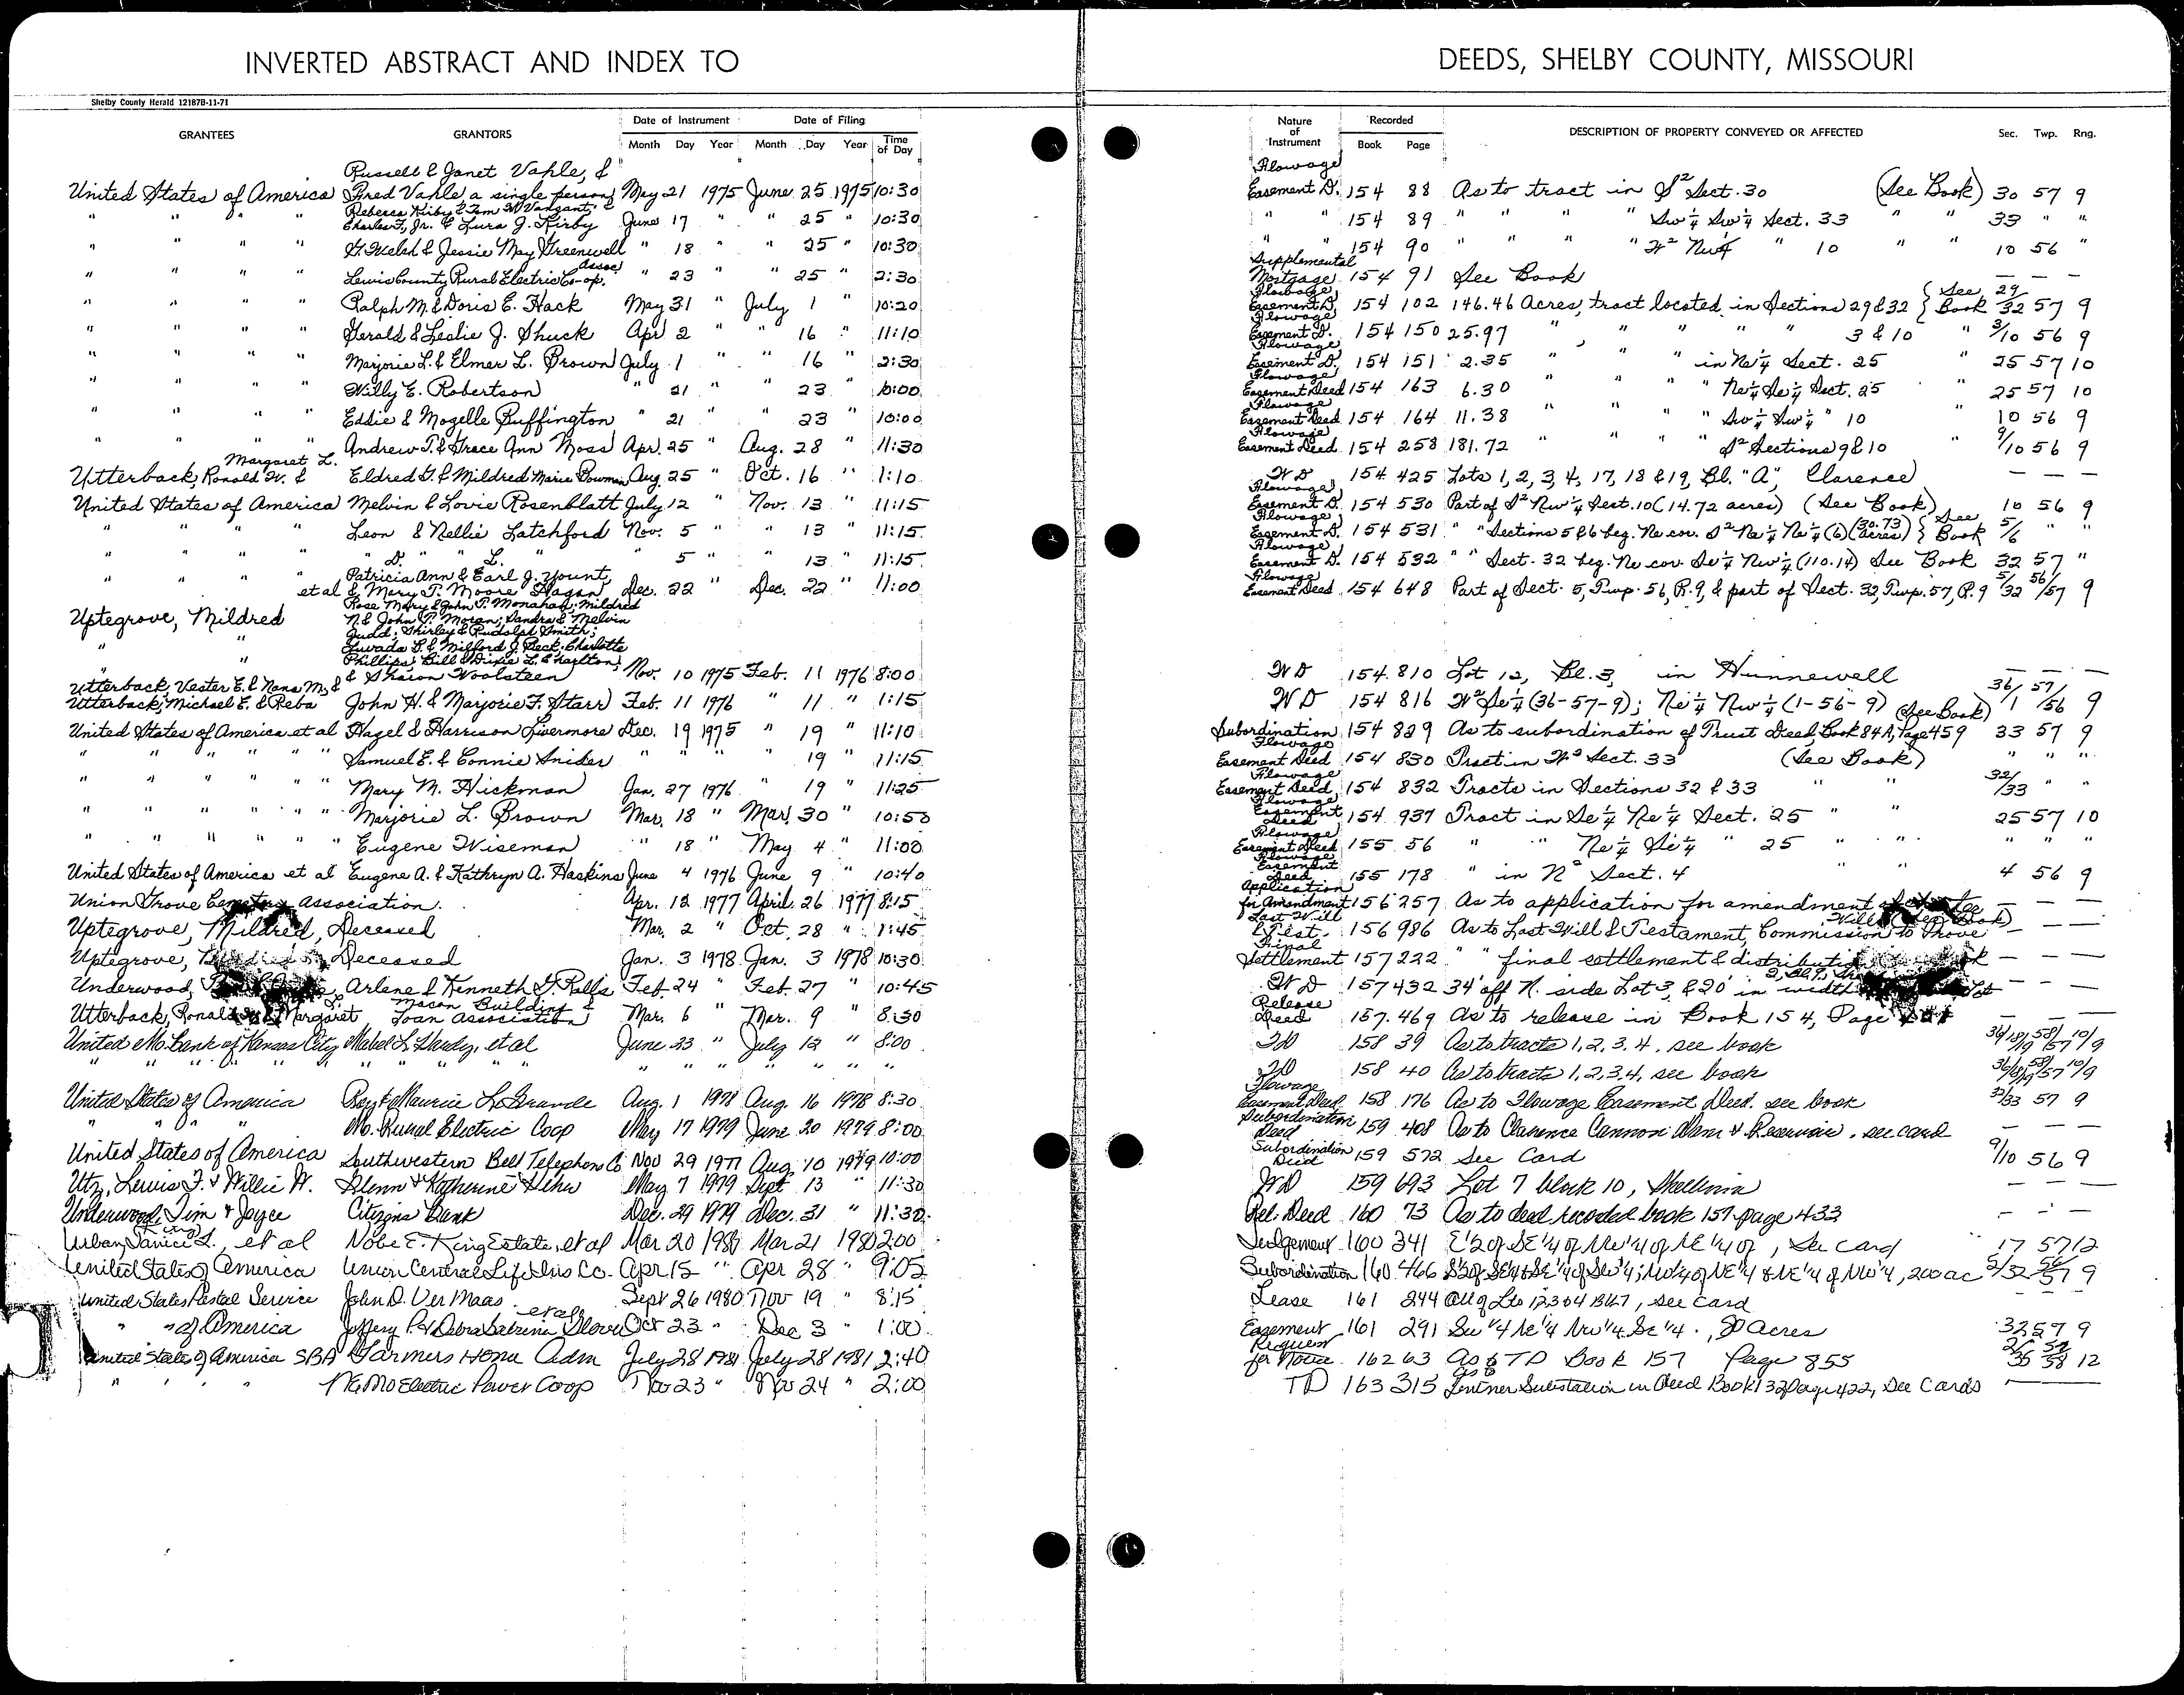 INVERTED ABSTRACT AND INDEX TO DEEDS, SHELBY COUNTY, MISSOURI
Shelby County Herald 12187B-11-71
GRANTEES GRANTORS Date of Instrument Month Day Year Date of Filing Month Day Year Time of Day Nature of Instrument Recorded Book Page DESCRIPTION OF PROPERTY CONVEYED OR AFFECTED Sec. Twp. Rng.
Russell & Janet Vahle, & Flowage
United States of America Fred Vahle, a single person May 21 1975 June 25 1975 10:30 Easement D. 154 88 As to tract in S² Sect. 30 (See Book) 30 57 9
Rebecca Kirby & Tom M. Vanzant, &
" " " Charles F., Jr. & Lura J. Kirby June 17 " " 25 " 10:30 " " 154 89 " " " " Sw¼ Sw¼ Sect. 33 " " 33 " "
" " " H. Welsh & Jessie May Greenwell " 18 " 25 " 10:30 " " 154 90 " " " " W² Nw¼ " 10 " " 10 56 "
" " " Lewis County Rural Electric Co-op. Assoc. " 23 " 25 " 2:30 Supplemental Mortgage 154 91 See Book — — —
" " " Ralph M. & Doris E. Hack May 31 " July 1 " 10:20 Flowage Easement D. 154 102 146.46 Acres, tract located in Sections 29 & 32 { See Book 29/32 57 9
" " " Gerald & Leslie J. Shuck Apr. 2 " " 16 " 11:10 Flowage Easement D. 154 150 25.97 " " " " 3 & 10 " 3/10 56 9
" " " Marjorie L. & Elmer L. Brown July 1 " " 16 " 2:30 Flowage Easement D. 154 151 2.35 " " " in Ne¼ Sect. 25 " 25 57 10
" " " Willy E. Robertson " 21 " " 23 " 10:00 Flowage Easement Deed 154 163 6.30 " " " " Ne¼ Se¼ Sect. 25 " 25 57 10
" " " Eddie & Mozelle Buffington " 21 " 23 " 10:00 Flowage Easement Deed 154 164 11.38 " " " " Sw¼ Sw¼ " 10 " 10 56 9
" " " Andrew T. & Grace Ann Moss Apr. 25 " Aug. 28 " 11:30 Flowage Easement Deed 154 258 181.72 " " " " S² Sections 9 & 10 " 9/10 56 9
Margaret L.
Utterback, Ronald W. & Eldred G. & Mildred Marie Bowman Aug. 25 " Oct. 16 " 1:10 WD 154 425 Lots 1, 2, 3, 4, 17, 18 & 19, Bl. "A", Clarence — — —
United States of America Melvin & Lovie Rosenblatt July 12 " Nov. 13 " 11:15 Flowage Easement D. 154 530 Part of S² Nw¼ Sect. 10 (14.72 acres) (See Book) 10 56 9
" " " Leon & Nellie Latchford Nov. 5 " " 13 " 11:15 Flowage Easement D. 154 531 " " Sections 5 & 6 beg. Ne cor. S² Ne¼ Ne¼ (6) (30.73 acres) } See Book 5/6 " "
" " " " D. " L. " 5 " " 13 " 11:15 Flowage Easement D. 154 532 " " Sect. 32 beg. Ne cor. Se¼ Nw¼ (110.14) See Book 32 57 "
Patricia Ann & Earl J. Yount,
" " " et al & Mary T. Moore Hagan Dec. 22 " Dec. 22 " 11:00 Flowage Easement Deed 154 648 Part of Sect. 5, Twp. 56, R. 9, & part of Sect. 32, Twp. 57, R. 9 5/32 56/57 9
Rose Mary & John P. Monahan; Mildred
Uptegrove, Mildred N. & John P. Moran; Sandra & Melvin
Judd; Shirley & Rudolph Smith;
" " Juvada D. & Milford J. Peck; Charlotte
Phillips; Bill & Dixie L. Charlton;
" " & Sharon Woolsteen Nov. 10 1975 Feb. 11 1976 8:00 WD 154 810 Lot 12, Bl. 3, in Hunnewell — — —
Utterback, Vester E. & Nona M., &
Utterback, Michael E. & Reba John H. & Marjorie F. Starr Feb. 11 1976 " 11 " 1:15 WD 154 816 W² Se¼ (36-57-9); Ne¼ Nw¼ (1-56-9) (See Book) 36/1 57/56 9
United States of America et al Hagel & Harrison Livermore Dec. 19 1975 " 19 " 11:10 Subordination 154 829 As to subordination of Trust Deed, Book 84A, Page 459 33 57 9
" " " " " Samuel E. & Connie Snider " " " " 19 " 11:15 Flowage Easement Deed 154 830 Tract in W² Sect. 33 (See Book) " " "
" " " " " Mary M. Hickman Jan. 27 1976 " 19 " 11:25 Flowage Easement Deed 154 832 Tracts in Sections 32 & 33 " " 32/33 " "
" " " " " Marjorie L. Brown Mar. 18 " Mar. 30 " 10:50 Flowage Easement Deed 154 937 Tract in Se¼ Ne¼ Sect. 25 " " 25 57 10
" " " " " Eugene Wiseman " 18 " May 4 " 11:00 Flowage Easement Deed 155 56 " " Ne¼ Se¼ " 25 " " " " "
United States of America et al Eugene A. & Kathryn A. Haskins June 4 1976 June 9 " 10:40 Flowage Easement Deed 155 178 " in N² Sect. 4 " " 4 56 9
Union Grove Cemetery Association Apr. 12 1977 April 26 1977 8:15 Application for Amendment 156 257 As to application for amendment — — —
Uptegrove, Mildred, Deceased Mar. 2 " Oct. 28 " 1:45 Last Will & Test. 156 986 As to Last Will & Testament, Commission to Prove Will (See Book) — — —
Uptegrove, Deceased Jan. 3 1978 Jan. 3 1978 10:30 Final Settlement 157 222 " " final settlement & distribution — — —
Underwood, Arlene & Kenneth J. Ralls Feb. 24 " Feb. 27 " 10:45 WD 157 432 34' off N. side Lot 3, & 20' in width
Utterback, Ronald W. & Margaret L. Macon Building & Loan Association Mar. 6 " Mar. 9 " 8:30 Release Deed 157 469 As to release in Book 154, Page — — —
United Mo. Bank of Kansas City Mabel L. Hardy, et al June 23 " July 12 " 8:00 TD 158 39 As to tracts 1, 2, 3, 4, see book
" " " " " " " " " " " " " TD 158 40 As to tracts 1, 2, 3, 4, see book
United States of America Roy & Maurice LeGrande Aug. 1 1978 Aug. 16 1978 8:30 Flowage Easement Deed 158 176 As to Flowage Easement Deed. see book 32/33 57 9
" " " Mo. Rural Electric Coop May 17 1979 June 20 1979 8:00 Subordination Deed 159 408 As to Clarence Cannon Dam & Reservoir. see card — — —
United States of America Southwestern Bell Telephone Co Nov 29 1977 Aug. 10 1979 10:00 Subordination Deed 159 572 See Card 9/10 56 9
Utz, Lewis F. & Willie W. Glenn & Katherine May 7 1979 Sept 13 " 11:30 WD 159 693 Lot 7 block 10, Shelbina — — —
Underwood, Jim & Joyce Citizens Bank Dec. 29 1979 Dec. 31 " 11:30 Rel. Deed 160 73 As to deed recorded book 157 page 433 — — —
Urban, Janice L., et al Nobe E. King Estate, et al Mar 20 1980 Mar 21 1980 2:00 Judgement 160 341 E½ of SE¼ of NW¼ of NE¼ of , See Card 17 57 12
United States of America Union Central Life Ins Co. Apr 15 " Apr 28 " 9:05 Subordination 160 466 S½ of SE¼ & SE¼ of SW¼; NW¼ of NE¼ & NE¼ of NW¼, 200 ac 5/32 56/57 9
United States Postal Service John D. Ver Maas Sept 26 1980 Nov 19 " 8:15 Lease 161 244 All of Lts 1 2 3 & 4 Blk 7, see card — —
" " of America Jeffery P. & Debra Sabrina et al Oct 23 " Dec 3 " 1:00 Easement 161 291 SW¼ NE¼ NW¼ SE¼ , 80 Acres 32 57 9
United States of America SBA Farmers Home Adm July 28 1981 July 28 1981 2:40 Request for Notice 162 63 As to TD Book 157 Page 855
" " " NE MO Electric Power Coop Nov 23 " Nov 24 " 2:00 TD 163 315 As to Lentner Substation in Deed Book 132 page 422, See Cards